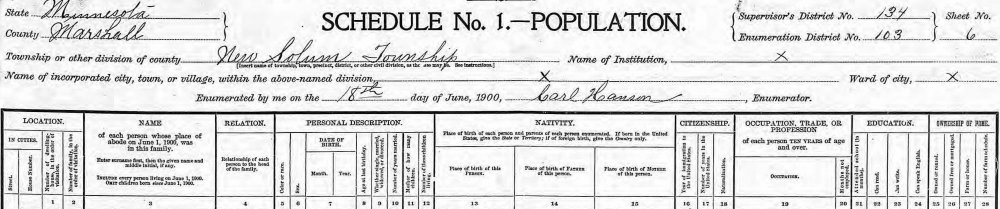 State Minnesota
County Marshall
SCHEDULE No. 1.—POPULATION.
Supervisor's District No. 134 Sheet No.
Enumeration District No. 103 6
Township or other division of county New Solum Township Name of Institution, X
[Insert name of township, town, precinct, district, or other civil division, as the case may be. See instructions.]
Name of incorporated city, town, or village, within the above-named division, X Ward of city, X
Enumerated by me on the 18th day of June, 1900, Carl Hanson, Enumerator.
LOCATION. NAME RELATION. PERSONAL DESCRIPTION. NATIVITY. CITIZENSHIP. OCCUPATION, TRADE, OR PROFESSION EDUCATION. OWNERSHIP OF HOME.
IN CITIES.
Street.
House Number.
of each person whose place of abode on June 1, 1900, was in this family.
Enter surname first, then the given name and middle initial, if any.
INCLUDE every person living on June 1, 1900.
OMIT children born since June 1, 1900.
Relationship of each person to the head of the family.
Color or race.
Sex.
DATE OF BIRTH.
Month. Year.
Age at last birthday.
Whether single, married, widowed, or divorced.
Number of years married.
Mother of how many children.
Number of these children living.
Place of birth of each person and parents of each person enumerated. If born in the United States, give the State or Territory; if of foreign birth, give the Country only.
Place of birth of this PERSON.
Place of birth of FATHER of this person.
Place of birth of MOTHER of this person.
Year of immigration to the United States.
Number of years in the United States.
Naturalization.
of each person TEN YEARS of age and over.
OCCUPATION.
Months not employed.
Attended school (in months).
Can read.
Can write.
Can speak English.
Owned or rented.
Owned free or mortgaged.
Farm or house.
Number of farm schedule.
1 2 3 4 5 6 7 8 9 10 11 12 13 14 15 16 17 18 19 20 21 22 23 24 25 26 27 28